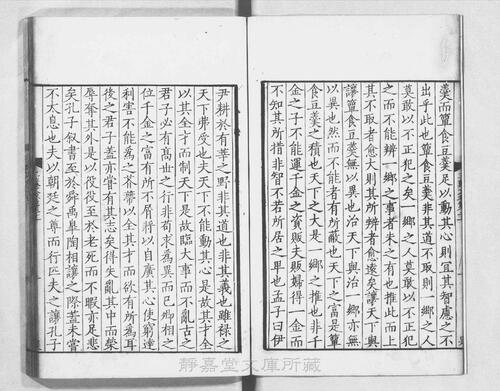 羹而簞食豆羹足以動其心則宜其智慮之不
出乎此也簞食豆羹非其道不取則一鄉之人
莫敢以不正犯之矣一鄉之人莫敢以不正犯
之而不能辨一鄉之事者未之有也推此而上
其不取者愈大則其所辨者愈遠矣讓天下與
讓簞食豆羹無以異也治天下與治一鄉亦無
以異也然而不能者有所蔽也天下之富是簞
食豆羹之積也天下之大是一鄉之推也非千
金之子不能運千金之資販夫販婦得一金而
不知其所措非智不若所居之卑也孟子曰伊
尹耕於有莘之野非其道也非其義也雖祿之
天下弗受也夫天下不能動其心是故其才全
以其全才而制天下是故臨大事而不亂古之
君子必有高世之行非苟求爲異而已卿相之
位千金之富有所不屑將以自廣其心使窮達
利害不能爲之芥蔕以全其才而欲有所爲耳
後之君子蓋亦嘗有其志矣得失亂其中而榮
辱奪其外是以役役至於老死而不暇亦足悲
矣孔子叙書至於舜禹皋陶相讓之際蓋未嘗
不太息也夫以朝廷之尊而行匹夫之讓孔子
靜嘉堂文庫所藏